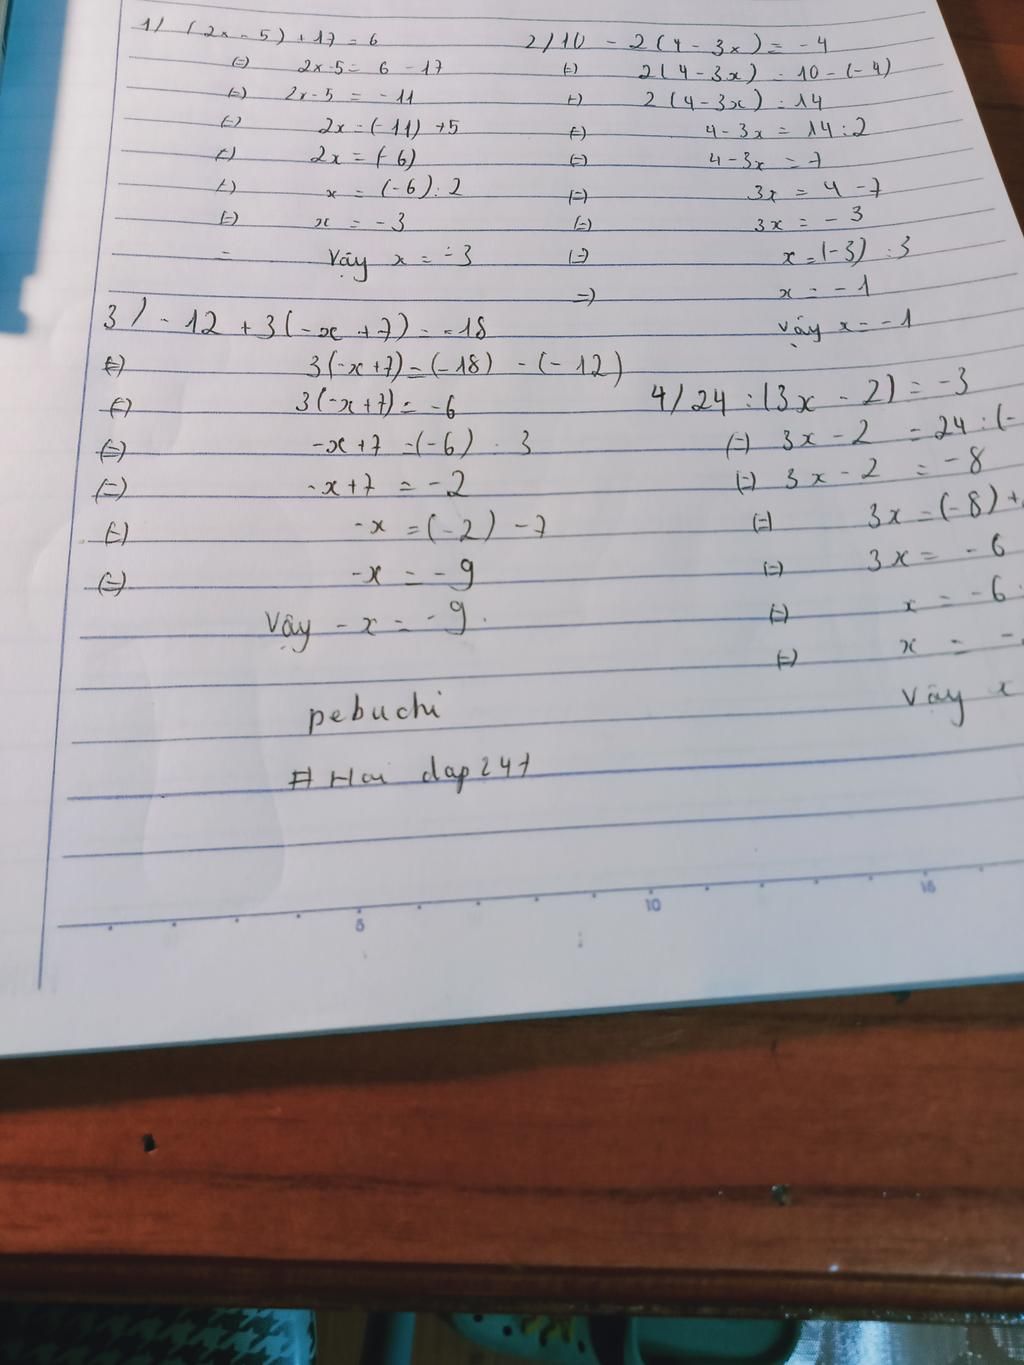 1/ (2x - 5) + 17 = 6
(=) 2x-5 = 6 - 17
(=) 2x-5 = -11
(=) 2x = (-11) +5
(=) 2x = (-6)
(=) x = (-6) : 2
(=) x = -3
= Vậy x = -3
2/ 10 - 2(4 - 3x) = -4
(=) 2(4-3x) = 10 - (-4)
(=) 2(4-3x) = 14
(=) 4-3x = 14:2
(=) 4-3x = 7
(=) 3x = 4 -7
(=) 3x = - 3
(=) x = (-3) : 3
=) x = -1
Vậy x = -1
3/ - 12 + 3(-x + 7) = -18
(=) 3(-x+7) = (-18) - (-12)
(=) 3(-x+7) = -6
(=) -x+7 = (-6) : 3
(=) -x+7 = -2
(=) -x = (-2) -7
(=) -x = -9
Vậy -x = -9.
4/ 24 : (3x - 2) = -3
(=) 3x - 2 = 24 : (-
(=) 3x - 2 = -8
(=) 3x = (-8) +
(=) 3x = -6
(=) x = -6
(=) x = -
Vậy x
pebuchi
# Hoi dap247
5
10
15